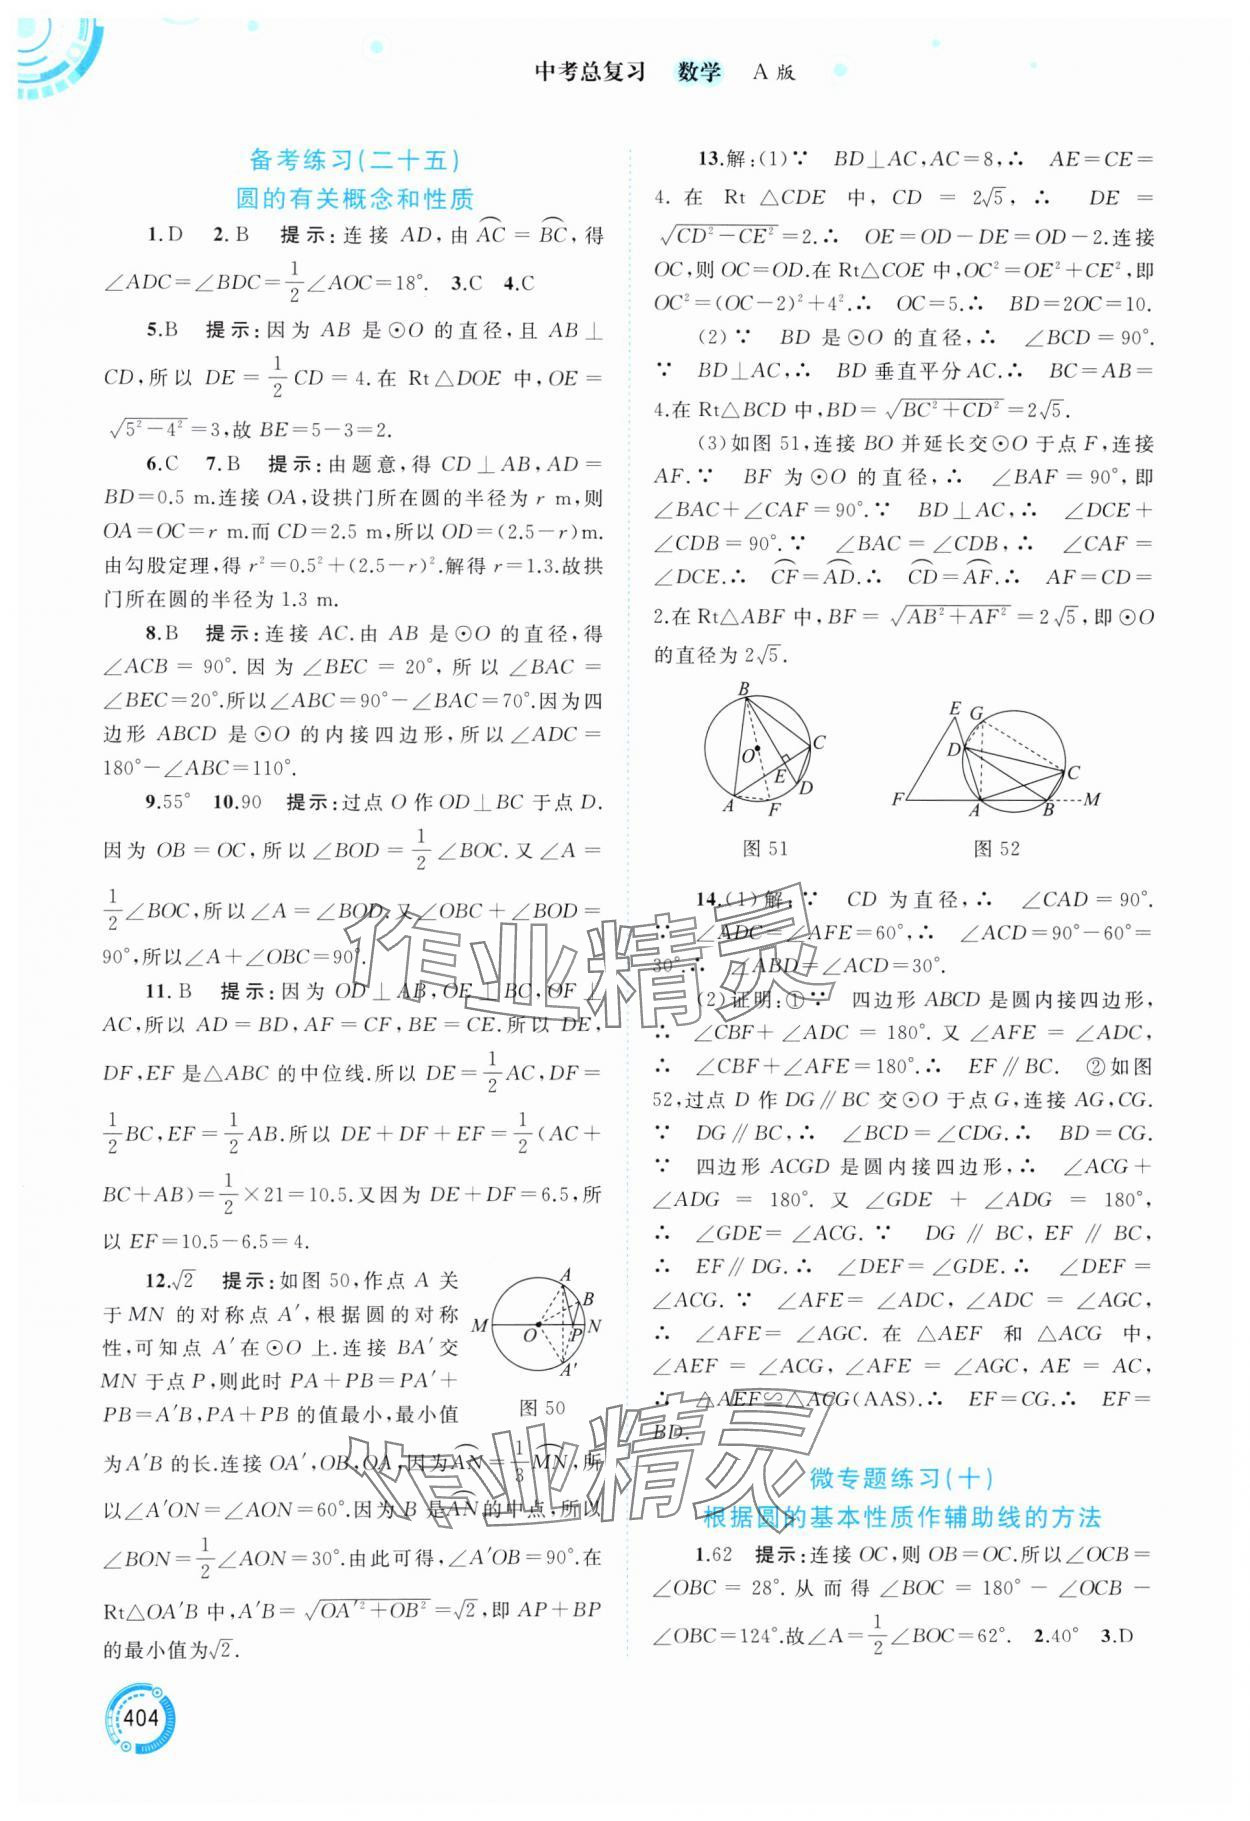 中考总复习 数学 A 版
备考练习(二十五)
圆的有关概念和性质
1.D 2.B 提示:连接 AD,由 A͡C=B͡C,得
∠ADC=∠BDC=1/2∠AOC=18°. 3.C 4.C
5.B 提示:因为 AB 是⊙O 的直径,且 AB⊥
CD,所以 DE=1/2CD=4.在 Rt△DOE 中,OE=
√(5²-4²)=3,故 BE=5-3=2.
6.C 7.B 提示:由题意,得 CD⊥AB,AD=
BD=0.5 m.连接 OA,设拱门所在圆的半径为 r m,则
OA=OC=r m.而 CD=2.5 m,所以 OD=(2.5-r)m.
由勾股定理,得 r²=0.5²+(2.5-r)².解得 r=1.3.故拱
门所在圆的半径为 1.3 m.
8.B 提示:连接 AC.由 AB 是⊙O 的直径,得
∠ACB=90°.因为∠BEC=20°,所以∠BAC=
∠BEC=20°.所以∠ABC=90°-∠BAC=70°.因为四
边形 ABCD 是⊙O 的内接四边形,所以∠ADC=
180°-∠ABC=110°.
9.55° 10.90 提示:过点 O 作 OD⊥BC 于点 D.
因为 OB=OC,所以∠BOD=1/2∠BOC.又∠A=
1/2∠BOC,所以∠A=∠BOD.又∠OBC+∠BOD=
90°,所以∠A+∠OBC=90°.
11.B 提示:因为 OD⊥AB,OE⊥BC,OF⊥
AC,所以 AD=BD,AF=CF,BE=CE.所以 DE,
DF,EF 是△ABC 的中位线.所以 DE=1/2AC,DF=
1/2BC,EF=1/2AB.所以 DE+DF+EF=1/2(AC+
BC+AB)=1/2×21=10.5.又因为 DE+DF=6.5,所
以 EF=10.5-6.5=4.
12.√2 提示:如图 50,作点 A 关
于MN 的对称点 A′,根据圆的对称
性,可知点 A′在⊙O 上.连接 BA′交
MN 于点 P,则此时 PA+PB=PA′+
PB=A′B,PA+PB 的值最小,最小值
A
B
M
O
P
N
A′
图 50
为A′B 的长.连接 OA′,OB,OA,因为A͡N=1/3M͡N,所
以∠A′ON=∠AON=60°.因为 B 是A͡N的中点,所以
∠BON=1/2∠AON=30°.由此可得,∠A′OB=90°.在
Rt△OA′B 中,A′B=√(OA′²+OB²)=√2,即 AP+BP
的最小值为√2.
404
13.解:(1)∵ BD⊥AC,AC=8,∴ AE=CE=
4.在 Rt△CDE 中,CD=2√5,∴ DE=
√(CD²-CE²)=2.∴ OE=OD-DE=OD-2.连接
OC,则 OC=OD.在 Rt△COE 中,OC²=OE²+CE²,即
OC²=(OC-2)²+4².∴ OC=5.∴ BD=2OC=10.
(2)∵ BD 是⊙O 的直径,∴ ∠BCD=90°.
∵ BD⊥AC,∴ BD 垂直平分 AC.∴ BC=AB=
4.在 Rt△BCD 中,BD=√(BC²+CD²)=2√5.
(3)如图 51,连接 BO 并延长交⊙O 于点 F,连接
AF.∵ BF 为⊙O 的直径,∴ ∠BAF=90°,即
∠BAC+∠CAF=90°.∵ BD⊥AC,∴ ∠DCE+
∠CDB=90°.∵ ∠BAC=∠CDB,∴ ∠CAF=
∠DCE.∴ C͡F=A͡D.∴ C͡D=A͡F.∴ AF=CD=
2.在 Rt△ABF 中,BF=√(AB²+AF²)=2√5,即⊙O
的直径为 2√5.
B
O
C
E
D
A
F
图 51
E
G
D
C
F
A
B
M
图 52
14.(1)解:∵ CD 为直径,∴ ∠CAD=90°.
∵ ∠ADC=∠AFE=60°,∴ ∠ACD=90°-60°=
30°.∴ ∠ABD=∠ACD=30°.
(2)证明:①∵ 四边形 ABCD 是圆内接四边形,
∴ ∠CBF+∠ADC=180°.又∠AFE=∠ADC,
∴ ∠CBF+∠AFE=180°.∴ EF∥BC. ②如图
52,过点 D 作 DG∥BC 交⊙O 于点 G,连接 AG,CG.
∵ DG∥BC,∴ ∠BCD=∠CDG.∴ BD=CG.
∵ 四边形 ACGD 是圆内接四边形,∴ ∠ACG+
∠ADG=180°.又∠GDE+∠ADG=180°,
∴ ∠GDE=∠ACG.∵ DG∥BC,EF∥BC,
∴ EF∥DG.∴ ∠DEF=∠GDE.∴ ∠DEF=
∠ACG.∵ ∠AFE=∠ADC,∠ADC=∠AGC,
∴ ∠AFE=∠AGC.在△AEF 和△ACG 中,
∠AEF=∠ACG,∠AFE=∠AGC,AE=AC,
∴ △AEF≌△ACG(AAS).∴ EF=CG.∴ EF=
BD.
微专题练习(十)
根据圆的基本性质作辅助线的方法
1.62 提示:连接 OC,则 OB=OC.所以∠OCB=
∠OBC=28°.从而得∠BOC=180°-∠OCB-
∠OBC=124°.故∠A=1/2∠BOC=62°. 2.40° 3.D
作业精灵
作业精灵